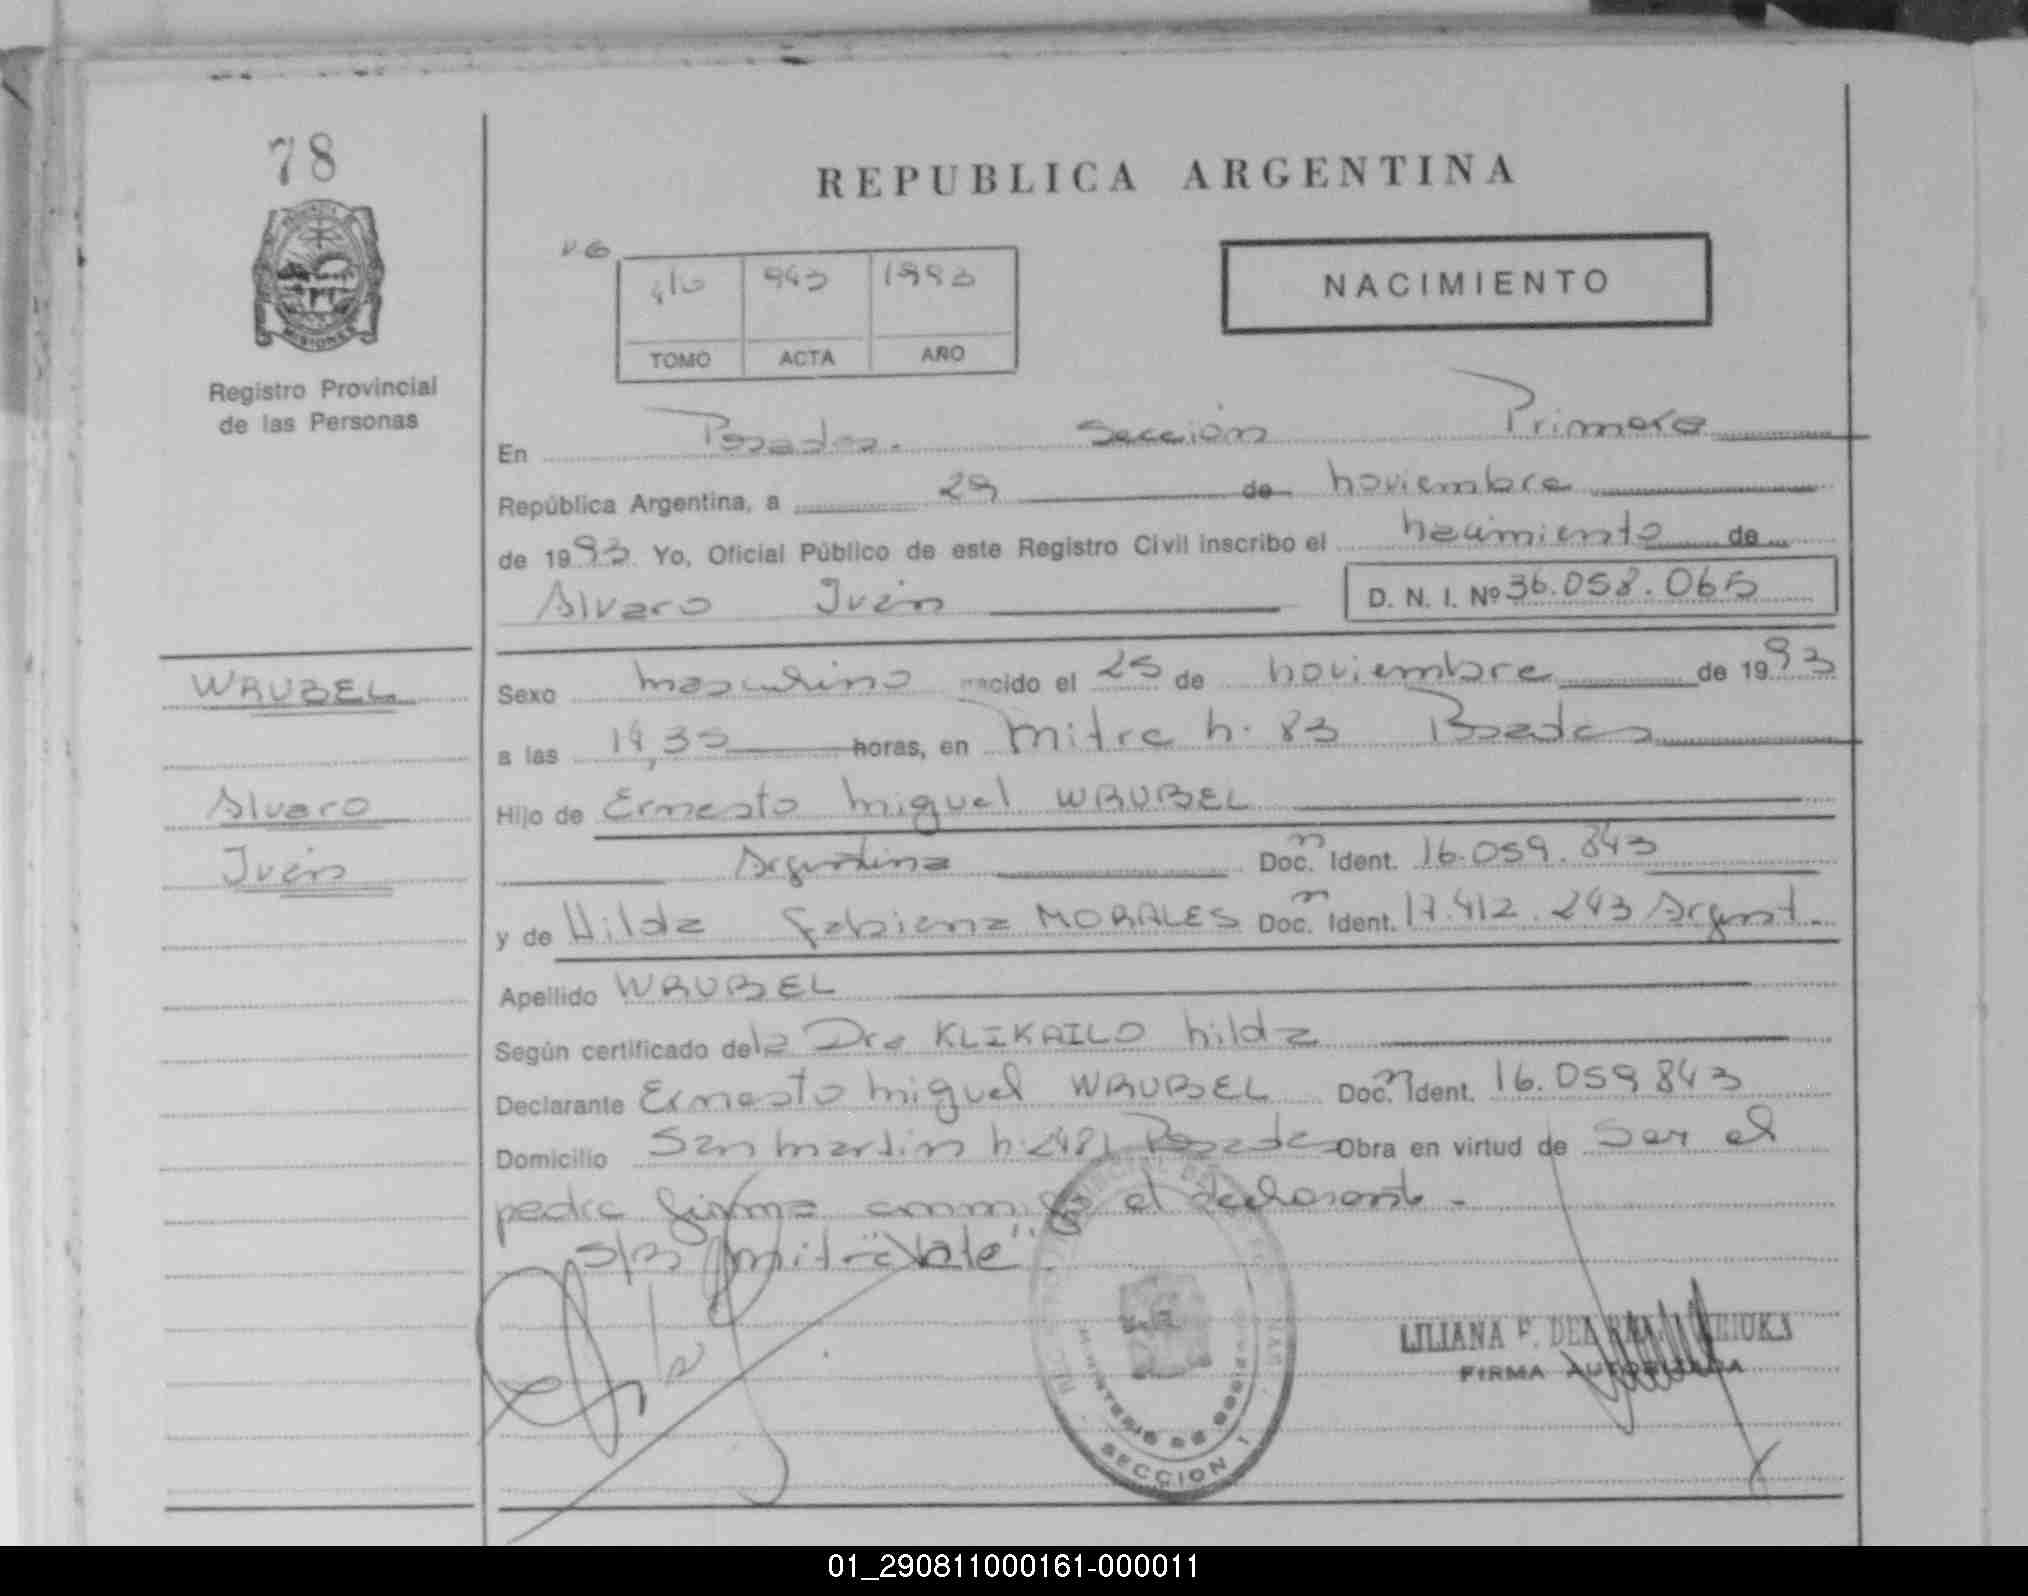 78
REPUBLICA ARGENTINA
943 1993
TOMO ACTA AÑO
NACIMIENTO
MISIONES
Registro Provincial
de las Personas
En Posadas. Sección Primera
República Argentina, a 29 de noviembre
de 1993 Yo, Oficial Público de este Registro Civil inscribo el nacimiento de
Alvaro Iván D. N. I. Nº 36.058.065
WRUBEL
Alvaro
Iván
Sexo masculino nacido el 25 de noviembre de 1993
a las horas, en mitre n. 83 Posadas
Hijo de Ernesto miguel WRUBEL
Argentina Doc. Ident. 16.059.843
y de Hilda Fabiana MORALES Doc. Ident. 17.412.243 Argent.
Apellido WRUBEL
Según certificado de la Dra KLIKAILO hilda
Declarante Ernesto miguel WRUBEL Doc. Ident. 16.059843
Domicilio San martin n. 2481 Posadas Obra en virtud de Ser el
padre firma conmigo el declarante.-
S/R "mitre" Vale
MINISTERIO DE GOBIERNO
SECCION 1
LILIANA P. DEL
FIRMA AUTORIZADA
01_290811000161-000011